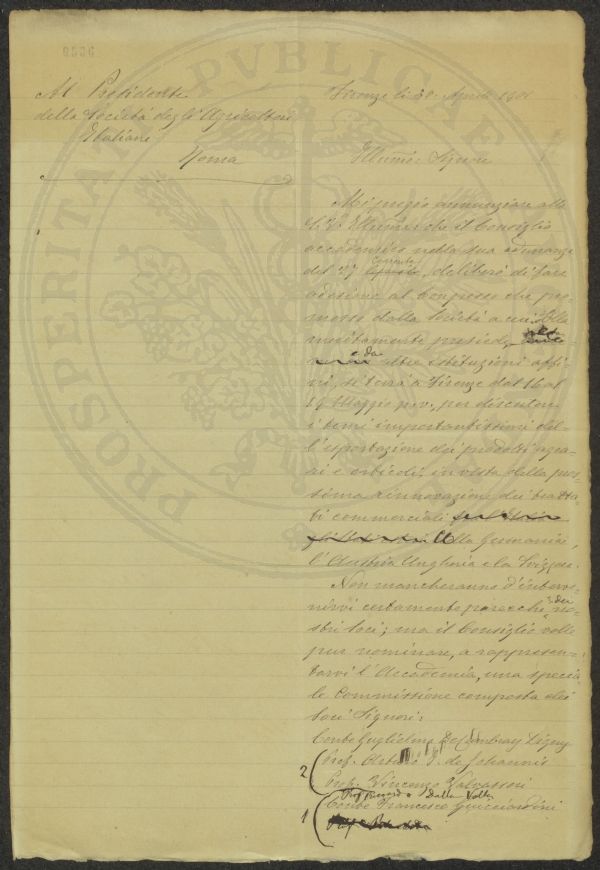 Al Presidente
della Società degli Agricoltori
Italiani
Roma
Firenze li 30 Aprile 1901
Illumo: Signore
Mi pregio annunziare alla
S. V. Illuma: che il Consiglio
accademico nella sua adunanza
del 27 corrente, deliberò di fare
adesione al Congresso che pro-
mosso dalla Società a cui Ella
meritamente presiede
e da altre istituzioni affi-
ni, si terrà a Firenze dal 16 al
19 Maggio p.v., per discutere
i temi importantissimi del-
l'esportazione dei prodotti agra-
ri e orticoli, in vista della pros-
sima rinnovazione dei tratta-
ti commerciali
colla Germania,
l'Austria Ungheria e la Svizzera.
Non mancheranno d'interve-
nirvi certamente parecchi dei no-
stri soci; ma il Consiglio volle
pur nominare, a rappresen-
tarvi l'Accademia, una specia-
le Commissione composta dei
soci Signori:
Conte Guglielmo De Cambray Digny
2 Prof. Arturo J. de Johannis
Prof. Vincenzo Valvassori
Prof. Riccardo Dalla Volta
1 Conte Francesco Guicciardini
PROSPERITATI PVBLICAE